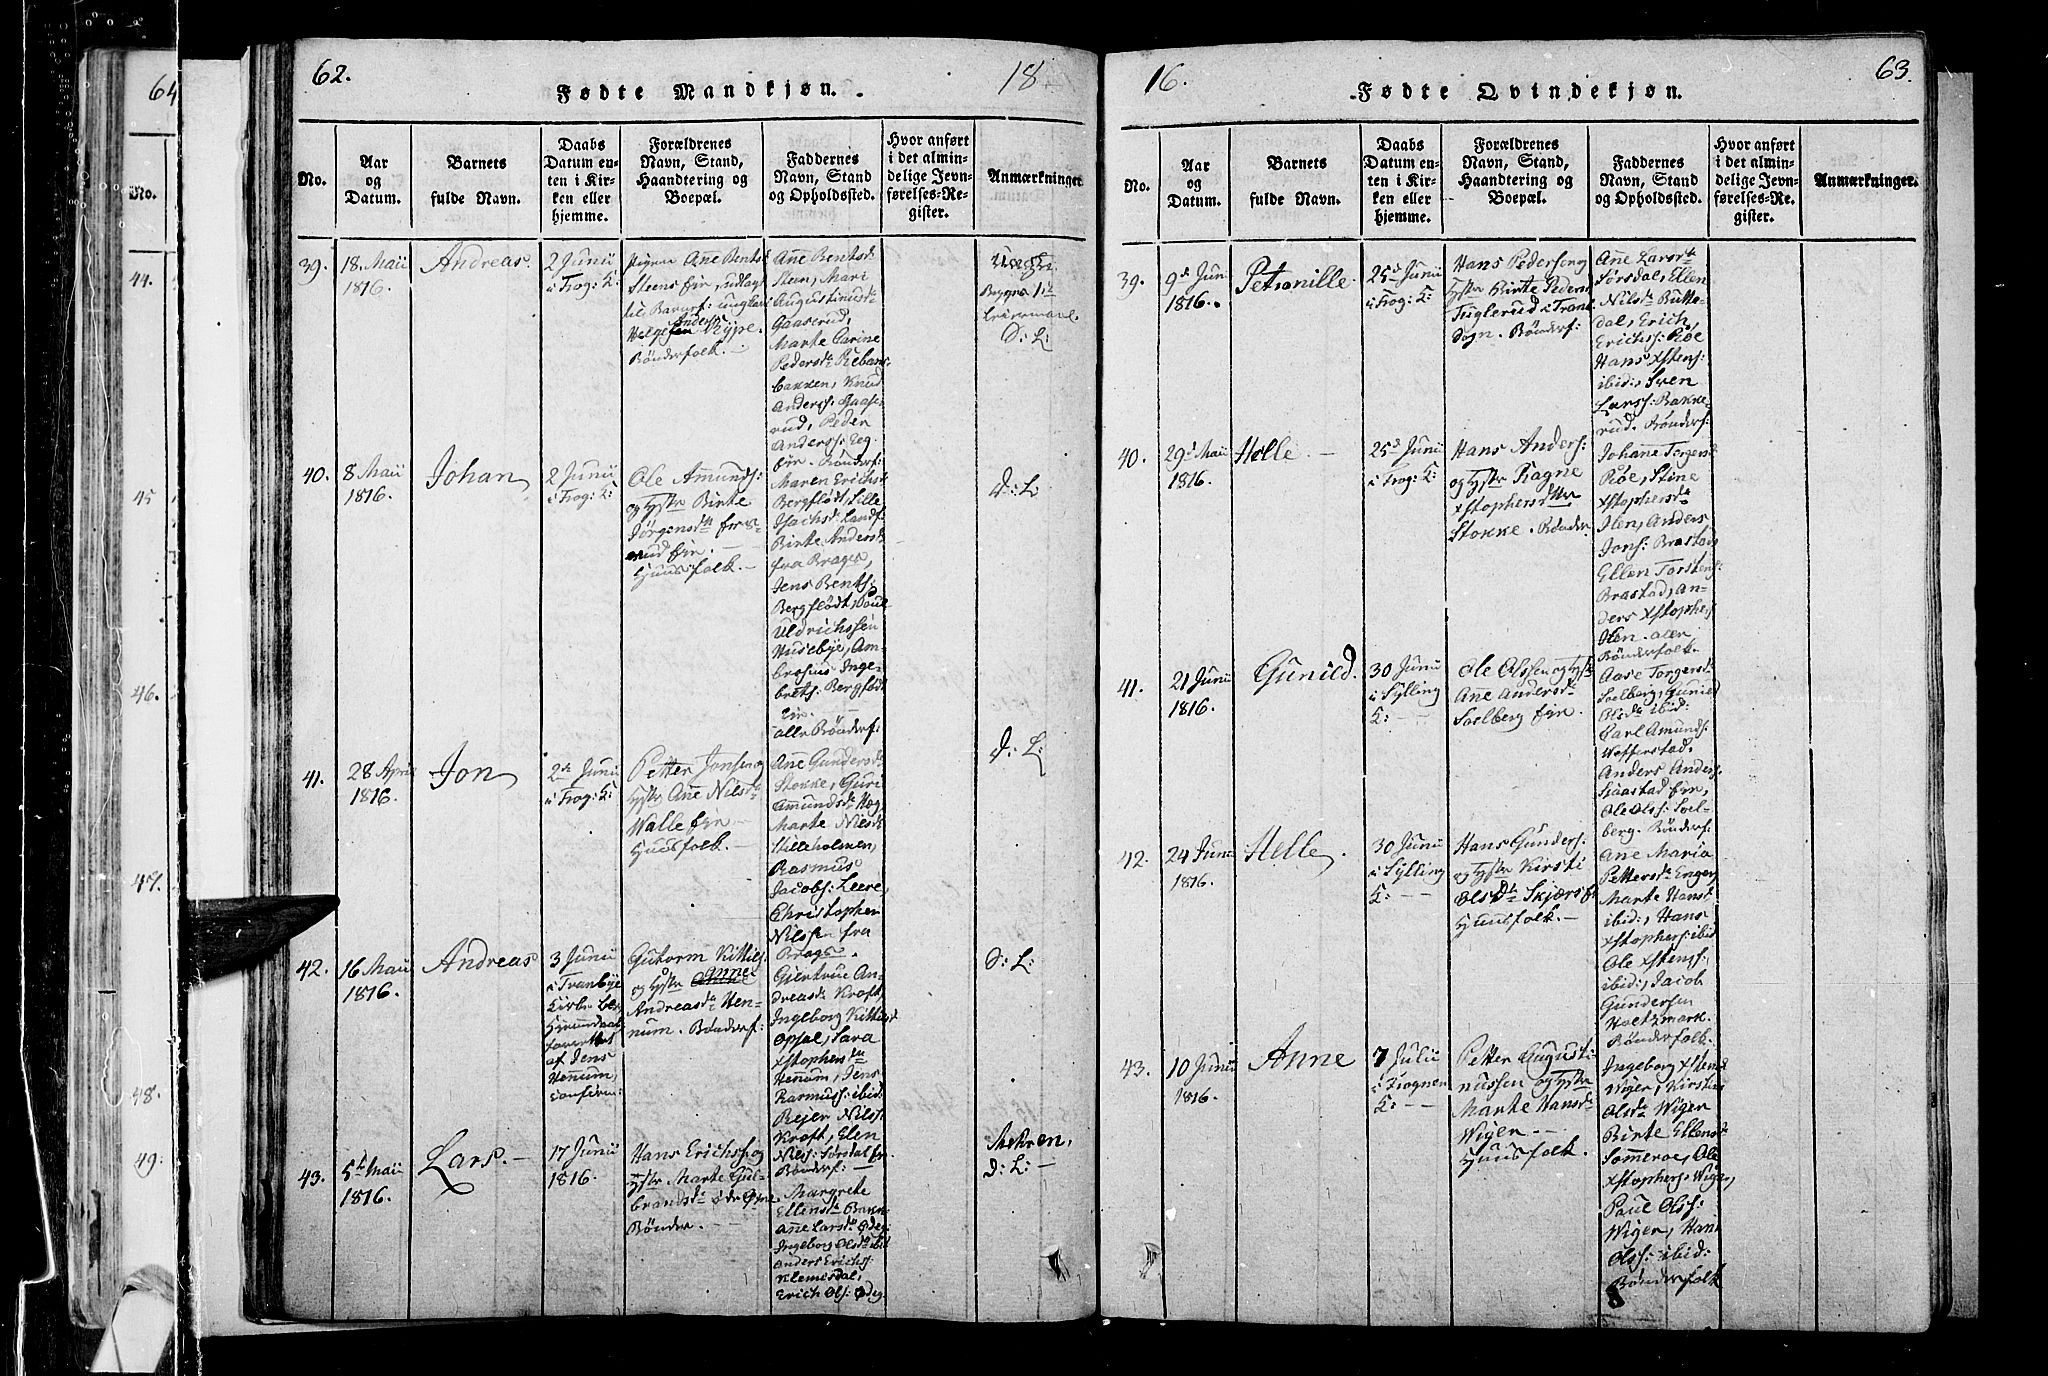 62.
Fødte Mandkjøn.
18
No.
Aar
og
Datum.
Barnets
fulde Navn.
Daabs
Datum en-
ten i Kir-
ken eller
hjemme.
Forældrenes
Navn, Stand,
Haandtering og
Boepæl.
Faddernes
Navn, Stand
og Opholdssted.
Hvor anført
i det almin-
delige Jevn-
førelses-Re-
gister.
Anmærkninger
39.
18. Maii
1816.
Andreas.
2 Junii
i Frog: K:
Pigen Ane Bents
Steens Eier, udlagt
til Barnef: ungkarl
Anders
Helgesen Rype.
Bønderfolk.
Ane Bentsd
Steen, Mari
Augustinusd
Gaaserud,
Marte Carine
Pedersd Rebans
bakken, Knud
Anders: Gaase-
rud, Peder
Anderss: Teg.
Eir. Bønderf:
Uægte
D: L:
40.
8 Maii
1816.
Johan
2 Junii
i Frog: K:
Ole Amunds:
og Hstr Birte
Jørgensdtr
rud Eir.
Huusfolk.
Maren Erichsd
Bergflødt, Sille
Isachsd: Landf:
Birte Andersd
fra Brages,
Jens Bents:
Bergflødt, Poul
Uldrichssen
Husebye, Am-
brosius Inge-
brets: Bergflødt
Eir.
alle Bønderf:
D: L:
41.
28 April
1816.
Jon
2de Junii
i Frog: K:
Petter Jonsen og
Hstr Ane Nilsd
Walle Eir
Huusfolk.
Ane Gundersd
Stokke, Guri
Amundsd Hæg
Marte Nilsd
Stilleholmen,
Rasmus
Jacobs: Leere,
Christopher
Nilssen fra
Brages.
D: L:
42.
16 Maii
1816.
Andreas
3 Junii
i Tranbye
Kirke
af Jens
Hennum,
Guttorm Kittils:
og Hstr Anne
Andreasd Hen-
num. Bønderf:
Giertrue An-
dreasd Kroft,
Ingeborg Kittilsd
Opsal, Sara
Xstophersd
Hennum, Jens
Rasmuss: ibid:
Rejer Nils:
Kroft, Elen
Nils: Sørsdal Eir
Bønderf:
D: L:
43.
5te Maii
1816.
Lars.
17 Junii
1816.
Hans Erichss: og
Hstr Marte Gul-
brandsd Ødegne
Bønder.
Margrete
Ellensd Bakk
Ane Larsd Ødeg:
Ingeborg Olsd ibid
Anders Erichs:
Klemesdal,
Erich Ols: Ødeg
D: L:
16.
Fødte Qvindekjøn.
63.
No.
Aar
og
Datum.
Barnets
fulde Navn.
Daabs
Datum en-
ten i Kir-
ken eller
hjemme.
Forældrenes
Navn, Stand,
Haandtering og
Boepæl.
Faddernes
Navn, Stand
og Opholdssted.
Hvor anført
i det almin-
delige Jevn-
førelses-Re-
gister.
Anmærkninger.
39.
9d Jun
1816.
Petronille
25d Junii
i Frog: K:
Hans Pedersen og
Hstr Birte Peders
Fuglerud i Tranb
Sogn. Bønderf:
Ane Larsdtr
Sørsdal, Ellen
Nilsd Butte-
dal, Erich
Erichss: Røe
Hans Xstens:
ibid:, Sven
Larss: Bakke-
rud. Bønderf:
40.
29d Maii
1816.
Helle.
25d Junii
i Frog: K:
Hans Anders:
og Hstr Ragne
Xstophersdtter
Stokke. Bønder
Johanne Torgersd
Røe, Stine
Xstophersd
Ilen, Anders
Jons: Brastad
Ellen Torstens:
Brastad, An-
ders Xstophers
Ilen. alle
Bønderfolk.
41.
21 Junii
1816.
Gunild.
30 Junii
i Sylling
K:
Ole Olssen og Hstr
Ane Andersd
Soelberg Eir.
Aase Torgersd
Soelberg, Gunild
Olsd ibid:
Carl Amunds:
Wefferstad.
Anders Anders:
Skaastad Eir,
Ole Ols: Soel-
berg. Bønderf:
42.
24 Junii
1816.
Helle.
30 Junii
i Sylling
K:
Hans Gunders:
og Hstr Kirsti
Olsd Skjærs
Huusfolk.
Ane Maria
Pettersd Enger
Marte Hansd
ibid:, Hans
Xstophers: ibid
Ole Xstens:
ibid:, Jacob
Gundersen
Holtzmark.
Bønderfolk.
43.
10 Junii
1816.
Anne
7 Julii
i Frognen
K:
Petter Augusti-
nussen og Hstr
Marte Hansd
Wiger
Huusfolk.
Ingeborg Xstens
Wiger, Kirstine
Olsd Wiger
Birte Ellensd
Sommeroe, Ole
Xstophers: Wiger,
Paul Olss:
Wiger, Hans
Olss: ibid:
Bønderfolk
64
No.
44.
45
46.
47.
48.
49.